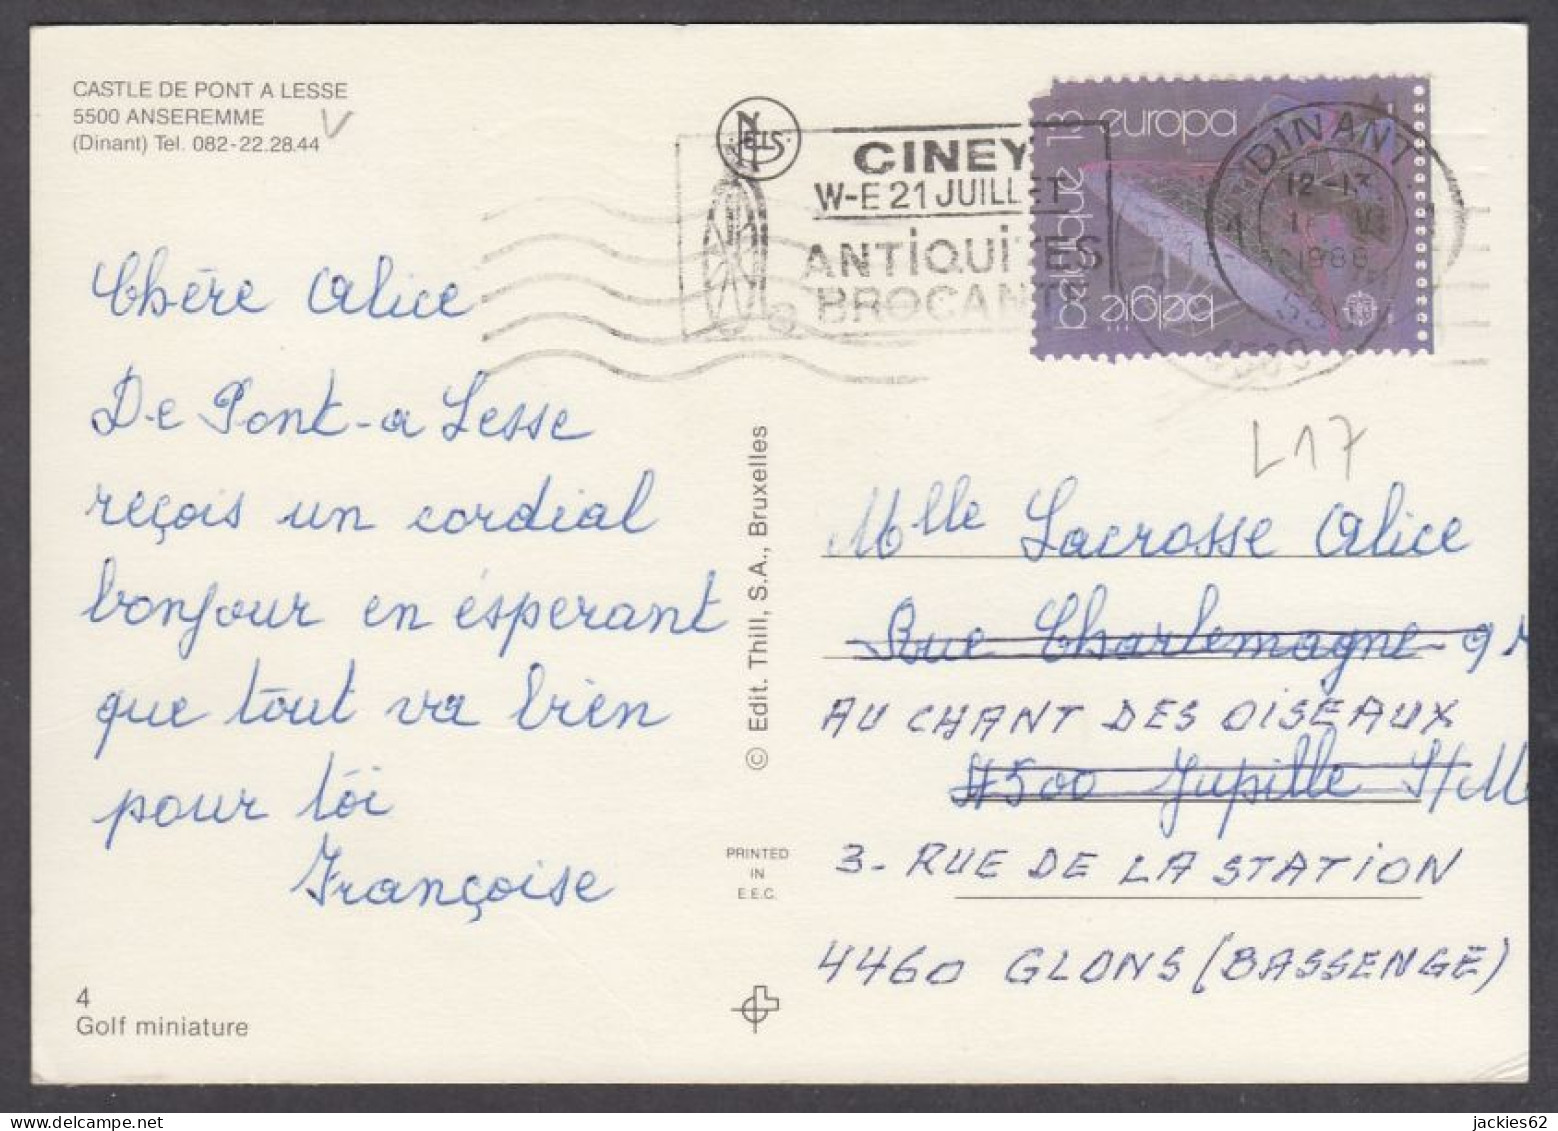 CASTLE DE PONT A LESSE
5500 ANSEREMME
(Dinant) Tel. 082-22.28.44
V
NELS
CINEY
W-E 21 JUILLET
ANTIQUITES
BROCANTE
belgique 13 europa
belgië
DINANT
12-13
1988
4500
L17
Chère Alice
De Pont-a Lesse
reçois un cordial
bonjour en ésperant
que tout va bien
pour toi
Françoise
© Edit. Thill, S.A., Bruxelles
PRINTED
IN
E.E.C.
Mlle Lacrosse Alice
Rue Charlemagne 9
AU CHANT DES OISEAUX
4500 Jupille
3 - RUE DE LA STATION
4460 GLONS (BASSENGE)
4
Golf miniature
jackies62